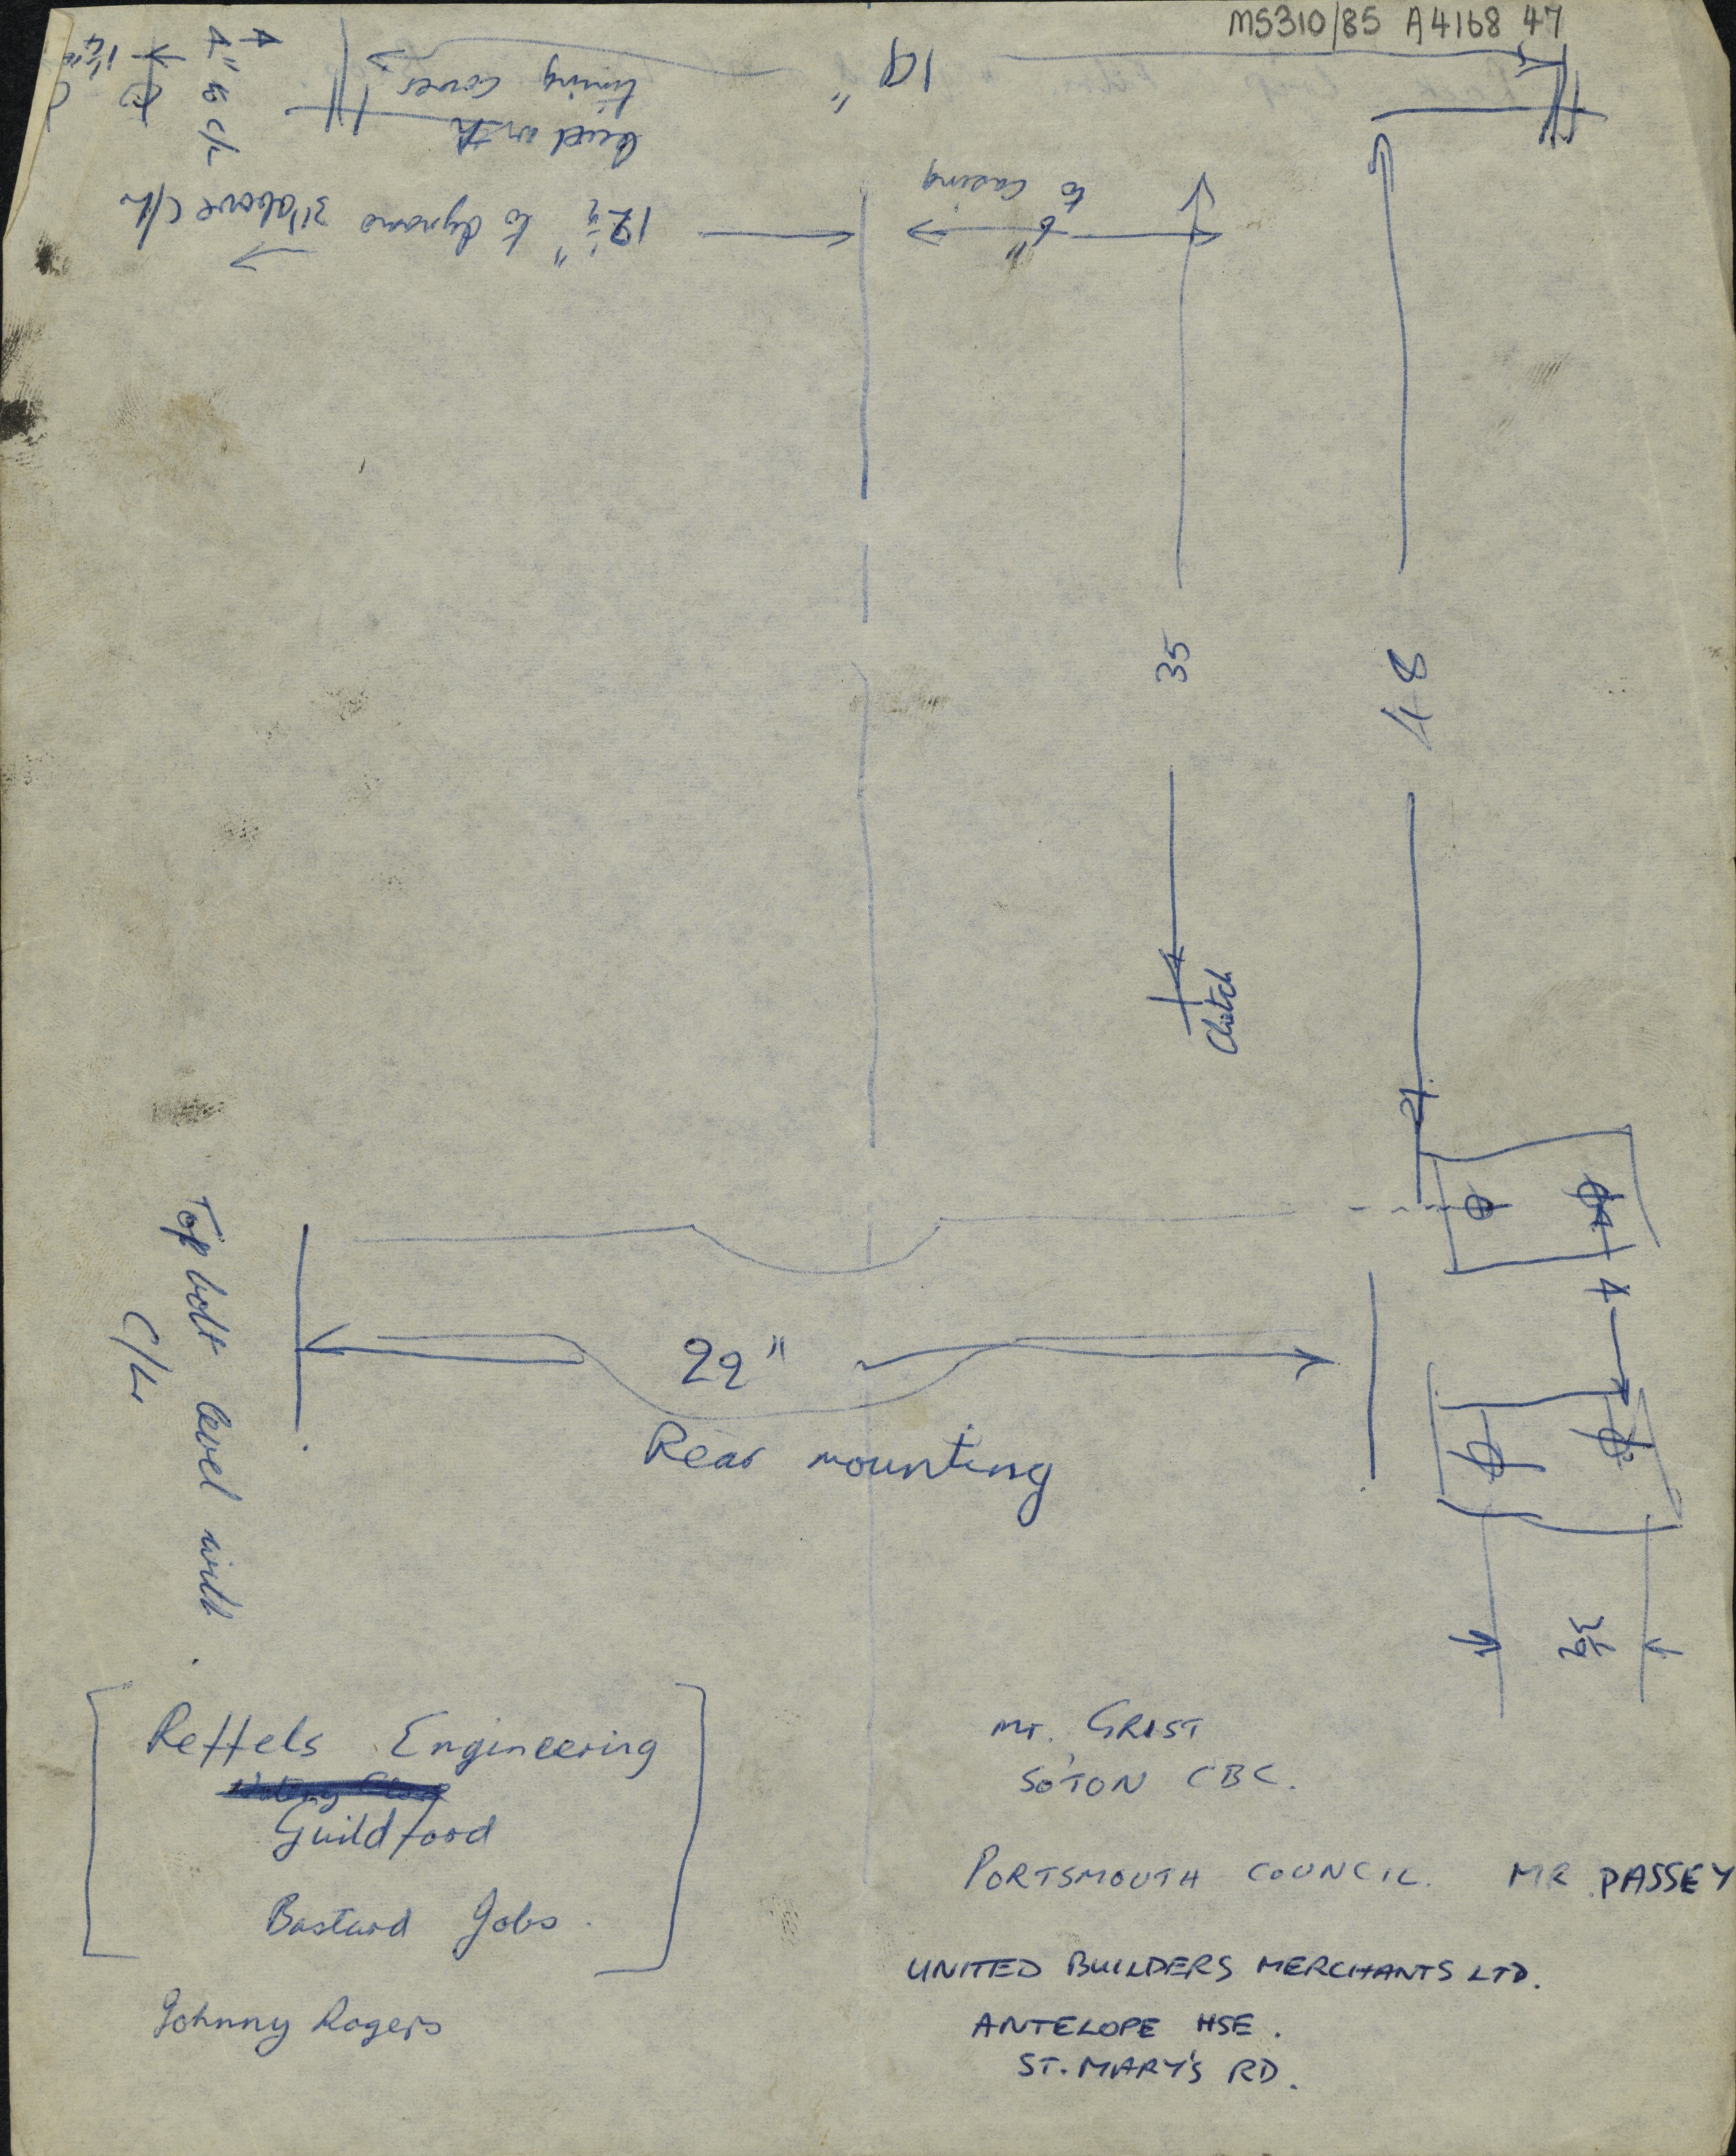 MS310/85 A4168 47
19"
level with
timing cover
4" to c/L
1¼"
12½" to dynamo 3" above c/L
6"
to casing
35
48
Clutch
4
22"
Rear mounting
Top bolt level with
C/L
Reffels Engineering
Guildford
Bastard Jobs.
Johnny Rogers
Mr. GRIST
SO'TON CBC.
PORTSMOUTH COUNCIL. MR PASSEY
UNITED BUILDERS MERCHANTS LTD.
ANTELOPE HSE.
ST. MARY'S RD.